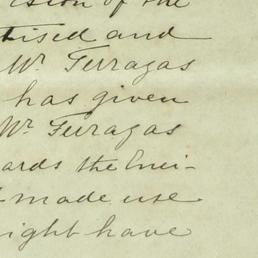 ision of the
tised and
Mr Ferragas
has given
Mr Ferragas
ards the Enci-
made use
ight have